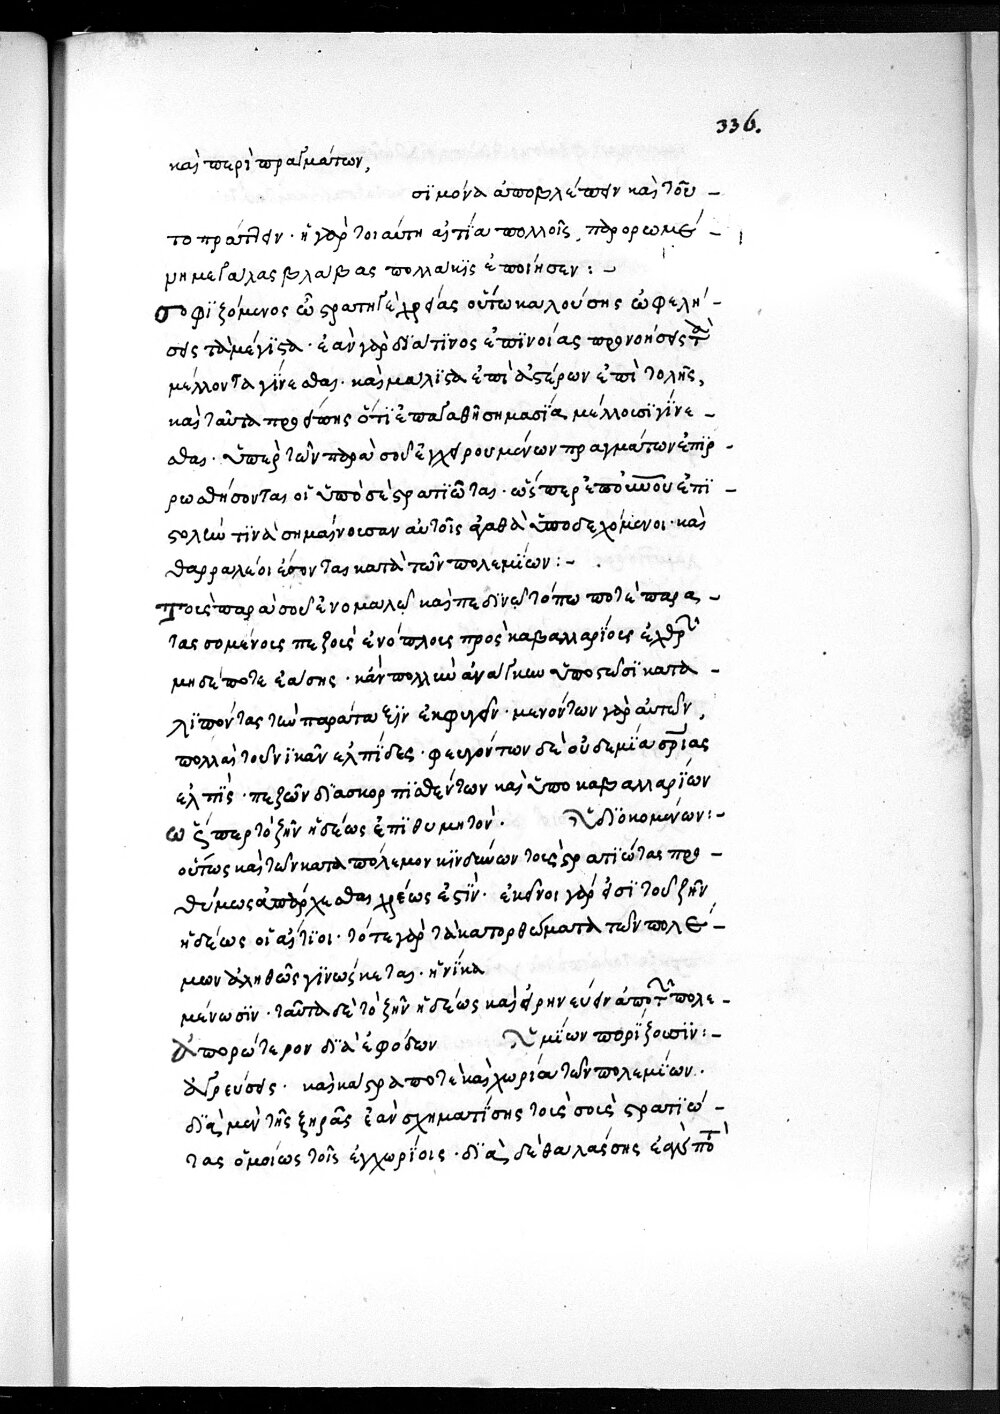 336.
καὶ περὶ πραγμάτων,
σϊ μόνα ἀποβλέπειν καὶ τοῦ –
το πράττειν · ἡ γὰρ τοιαύτη αἰτία πολλοῖς παρορωμέ –
νη μεγάλας βλάβας πολλακϊς ἐποίησεν : –
σοφϊζόμενος ὦ στρατηγὲ χρείας οὕτω καλούσης ὠφελή –
σεις τὰ μέγϊστα · ἐὰν γὰρ δϊά τινος ἐπϊνοίας προνοήσεις τὰ
μέλλοντα γίνεσθαι · καὶ μαλϊστα ἐπὶ ἀστέρων ἐπϊτολῆς,
καὶ ταῦτα προείπης ὅτϊ ἐπ' ἀγαθῆ σημασΐα μέλλουσϊ γϊνε –
σθαι · ὑπὲρ τῶν παρὰ σοῦ ἐγχειρουμένων πραγμάτων ἐπϊρ –
ρωσθήσονται οἱ ὑπὸ σὲ στρατϊῶται · ὥσπερ ἐπ' οἰκείου ἐπϊ –
στολὴν τϊνὰ σημαίνουσαν αὐτοῖς ἀγαθὰ ὑποδεχόμενοι · καὶ
θαρραλέοι ἔσονται κατὰ τῶν πολεμϊων : –
Τοῖς παρὰ σοῦ ἐν ὁμαλῶ καὶ πεδϊνῶ τόπω ποτὲ παρα
τασσομένοις πεζοῖς ἐνόπλοις πρὸς καβαλλαρϊοις ἐχθροῖς
μηδέποτε ἐάσης · κἂν πολλὴν ἀνάγκην ὑποστῶσϊ κατα –
λϊπόντας τὴν παράταξϊν ἐκφυγεῖν · μενόντων γὰρ αὐτῶν,
πολλαὶ τοῦ νϊκᾶν ἐλπϊδες · φευγόντων δὲ οὐδεμϊα σωτηρίας
ἐλπὶς · πεζῶν δϊασκορπϊσθέντων καὶ ὑπὸ καβαλλαρϊων
ὥσπερ τὸ ζῆν ἡδέως ἐπϊθυμητόν · δϊοκομένων : –
οὕτως καὶ τῶν κατὰ πόλεμον κϊνδύνων τοὺς στρατϊώτας προ –
θύμως ἀπάρχεσθαι χρέως ἐστϊν · ἐκεῖνοι γάρ εἰσϊ τοῦ ζῆν
ἡδέως οἱ αἴτϊοι · τότε γὰρ τὰ κατορθώματα τῶν πολέ –
μων ἀληθῶς γϊνώσκεται · ἡνίκα
μένωσϊν · ταῦτα δὲ τὸ ζῆν ἡδέως καὶ εἰρηνεύειν ἀπὸ τῶν πολε –
Ἀπορώτερον δϊ' ἐφόδων μϊων πορϊζουσϊν : –
ἀγρεύσεις · καὶ καστρά ποτε καὶ χωρία τῶν πολεμϊων ·
δϊὰ μὲν τῆς ξηρᾶς ἐὰν σχηματϊσης τοὺς σοὺς στρατϊώ –
τας ὁμοίως τοῖς ἐγχωρϊοις · δϊὰ δὲ θαλάσσης